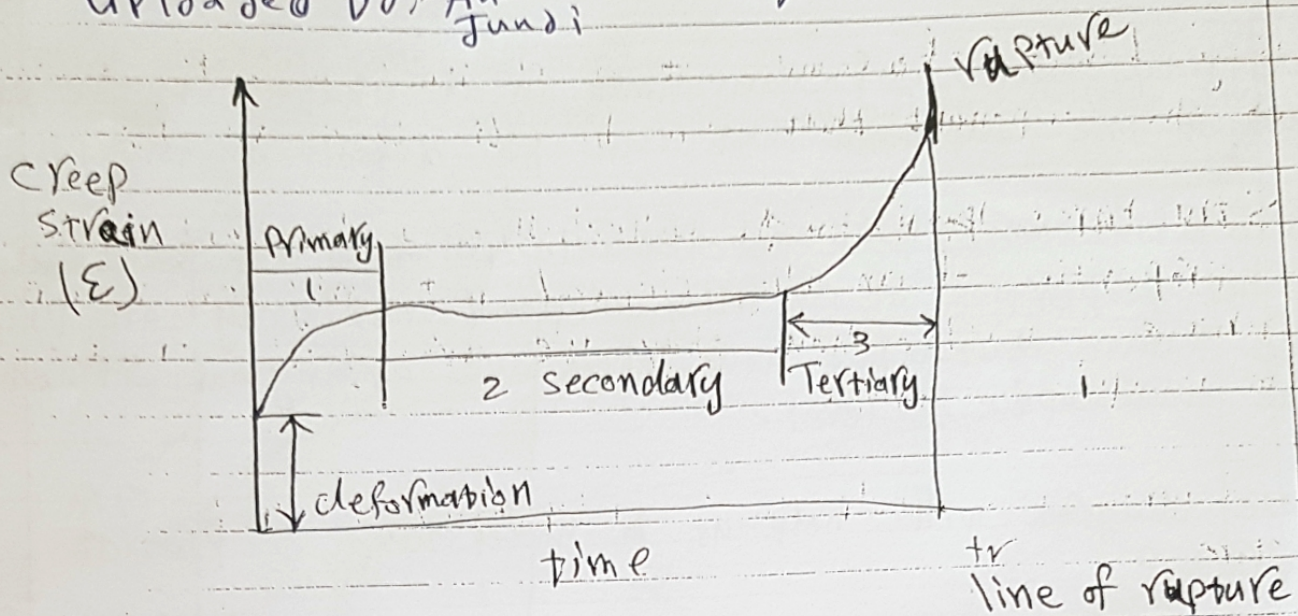 uploaded by:
Jundi
rupture
creep
strain
(ε)
Primary
1
2 secondary
3
Tertiary
deformation
time
tr
line of rupture